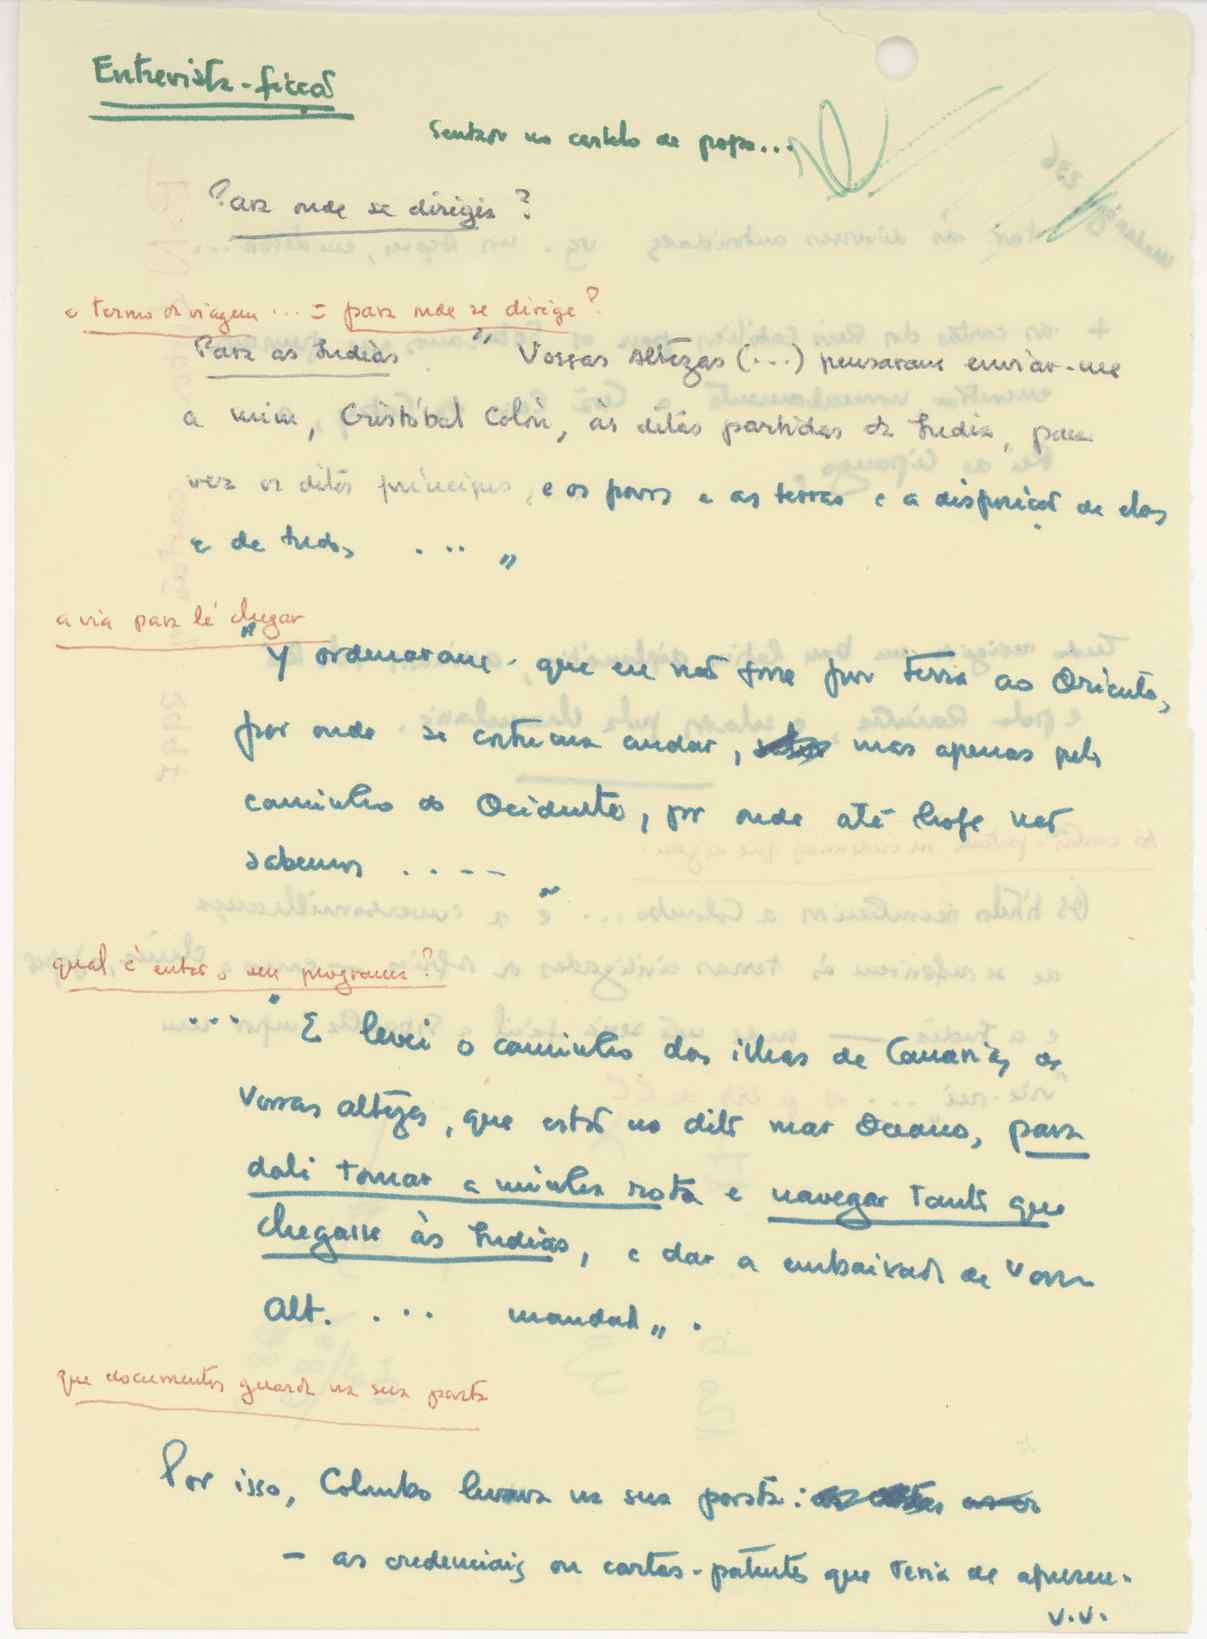 Entrevista-ficção
Sentar no castelo de popa...
Para onde se dirigia?
o termo da viagem ... = para onde se dirige?
Para as Índias " Vossas Altezas (...) pensaram enviar-me
a mim, Cristóbal Colón, às ditas partidas da Índia, para
ver os ditos príncipes, e os povos e as terras e a disposição de elas
e de tudo, ... "
a via para lá chegar
" Y ordenaram que eu não fosse por terra ao Oriente,
por onde se costuma andar, mas apenas pelo
caminho do Ocidente, por onde até hoje não
sabemos .... "
qual é então o seu programa?
... " E levei o caminho das ilhas de Canária, de
Vossas Altezas, que estão no dito mar Oceano, para
dali tomar a minha rota e navegar tanto que
chegasse às Índias, e dar a embaixada de Vossas
Alt. ... mandad ".
que documentos guarda na sua pasta
Por isso, Colombo levava na sua pasta:
- as credenciais ou cartas-patentes que teria de apresen-
v.v.